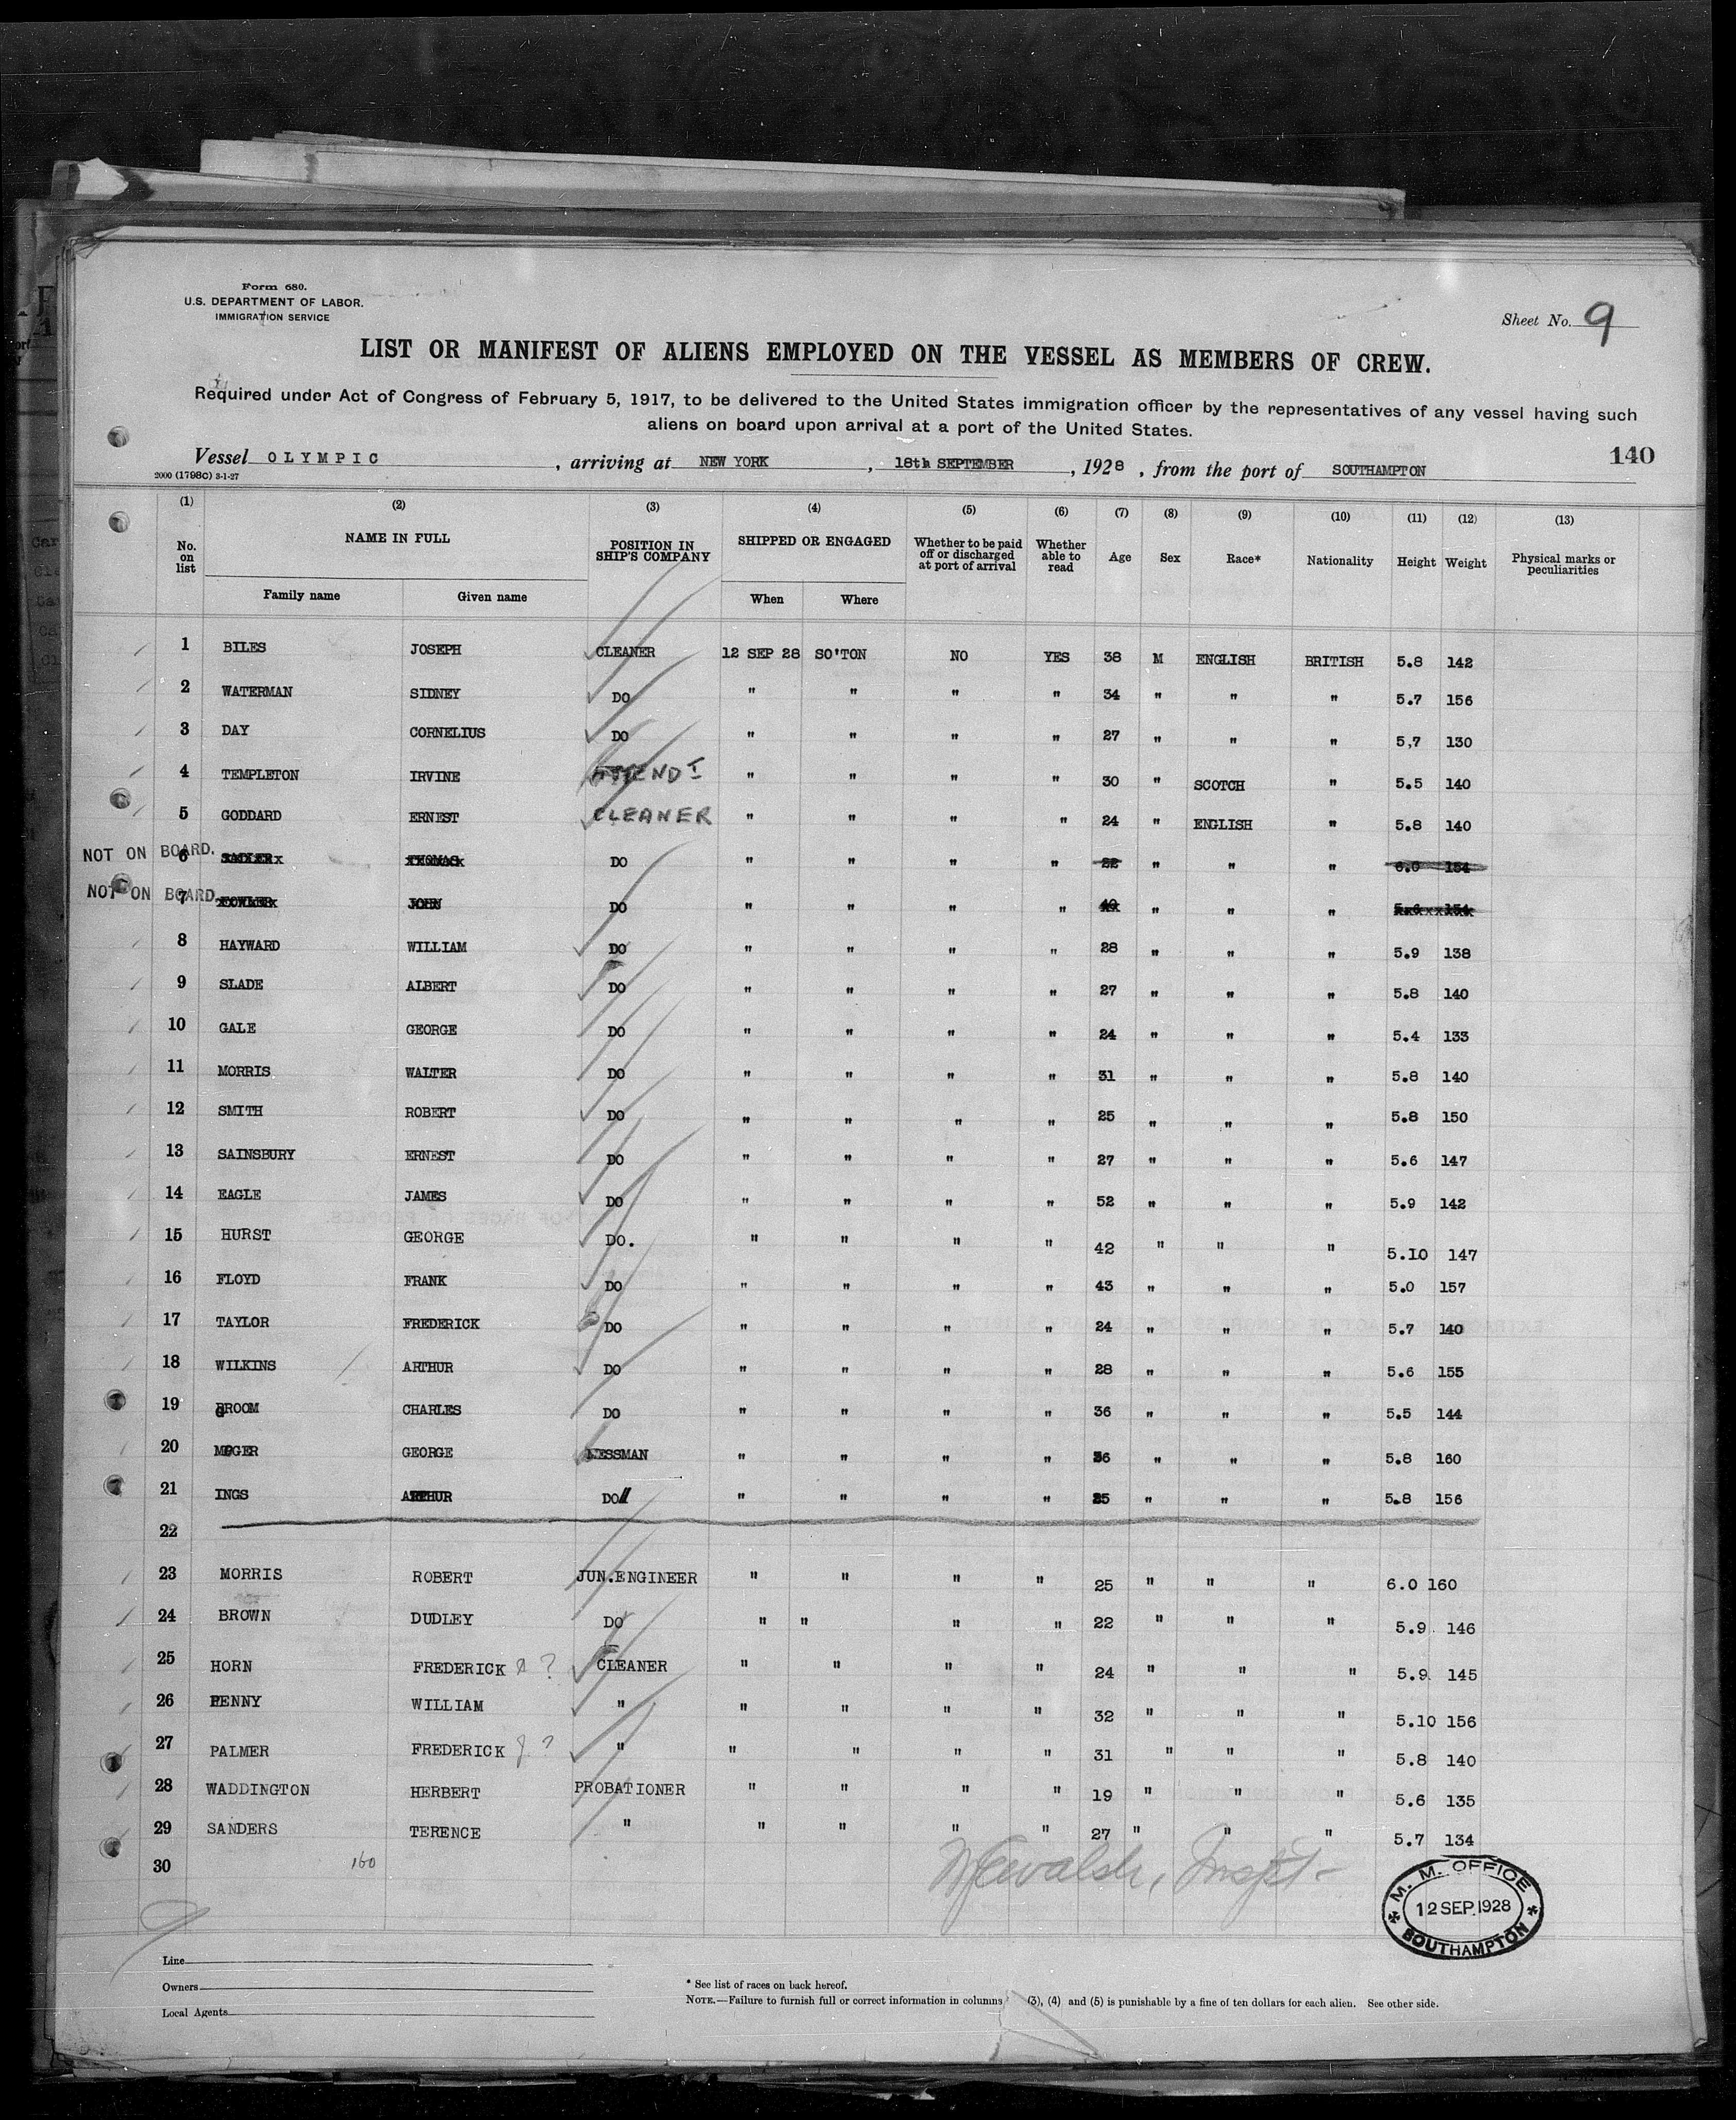 Form 680.
U.S. DEPARTMENT OF LABOR.
IMMIGRATION SERVICE
Sheet No. 9
LIST OR MANIFEST OF ALIENS EMPLOYED ON THE VESSEL AS MEMBERS OF CREW.
Required under Act of Congress of February 5, 1917, to be delivered to the United States immigration officer by the representatives of any vessel having such
aliens on board upon arrival at a port of the United States.
140
Vessel OLYMPIC, arriving at NEW YORK, 18th SEPTEMBER, 1928, from the port of SOUTHAMPTON
2000 (1798c) 3-1-27
(1) (2) (3) (4) (5) (6) (7) (8) (9) (10) (11) (12) (13)
No. on list NAME IN FULL POSITION IN SHIP'S COMPANY SHIPPED OR ENGAGED Whether to be paid off or discharged at port of arrival Whether able to read Age Sex Race* Nationality Height Weight Physical marks or peculiarities
Family name Given name When Where
1 BILES JOSEPH CLEANER 12 SEP 28 SO'TON NO YES 38 M ENGLISH BRITISH 5.8 142
2 WATERMAN SIDNEY DO " " " " 34 " " " 5.7 156
3 DAY CORNELIUS DO " " " " 27 " " " 5,7 130
4 TEMPLETON IRVINE ATTENDT " " " " 30 " SCOTCH " 5.5 140
5 GODDARD ERNEST CLEANER " " " " 24 " ENGLISH " 5.8 140
NOT ON BOARD. 6 THOMAS DO " " " " 22 " " " 6.0 154
NOT ON BOARD. 7 FOWLER JOHN DO " " " " 40 " " " 5.6 154
8 HAYWARD WILLIAM DO " " " " 28 " " " 5.9 138
9 SLADE ALBERT DO " " " " 27 " " " 5.8 140
10 GALE GEORGE DO " " " " 24 " " " 5.4 133
11 MORRIS WALTER DO " " " " 31 " " " 5.8 140
12 SMITH ROBERT DO " " " " 25 " " " 5.8 150
13 SAINSBURY ERNEST DO " " " " 27 " " " 5.6 147
14 EAGLE JAMES DO " " " " 52 " " " 5.9 142
15 HURST GEORGE DO. " " " " 42 " " " 5.10 147
16 FLOYD FRANK DO " " " " 43 " " " 5.0 157
17 TAYLOR FREDERICK DO " " " " 24 " " " 5.7 140
18 WILKINS ARTHUR DO " " " " 28 " " " 5.6 155
19 GROOM CHARLES DO " " " " 36 " " " 5.5 144
20 GEORGE MESSMAN " " " " 36 " " " 5.8 160
21 INGS ARTHUR DO " " " " 25 " " " 5.8 156
22
23 MORRIS ROBERT JUN.ENGINEER " " " " 25 " " " 6.0 160
24 BROWN DUDLEY DO " " " " 22 " " " 5.9 146
25 HORN FREDERICK ? CLEANER " " " " 24 " " " 5.9 145
26 PENNY WILLIAM " " " " " 32 " " " 5.10 156
27 PALMER FREDERICK ? " " " " " 31 " " " 5.8 140
28 WADDINGTON HERBERT PROBATIONER " " " " 19 " " " 5.6 135
29 SANDERS TERENCE " " " " " 27 " " " 5.7 134
30 160
M. M. OFFICE
12 SEP. 1928
SOUTHAMPTON
Line
Owners
Local Agents
* See list of races on back hereof.
NOTE.—Failure to furnish full or correct information in columns (3), (4) and (5) is punishable by a fine of ten dollars for each alien. See other side.